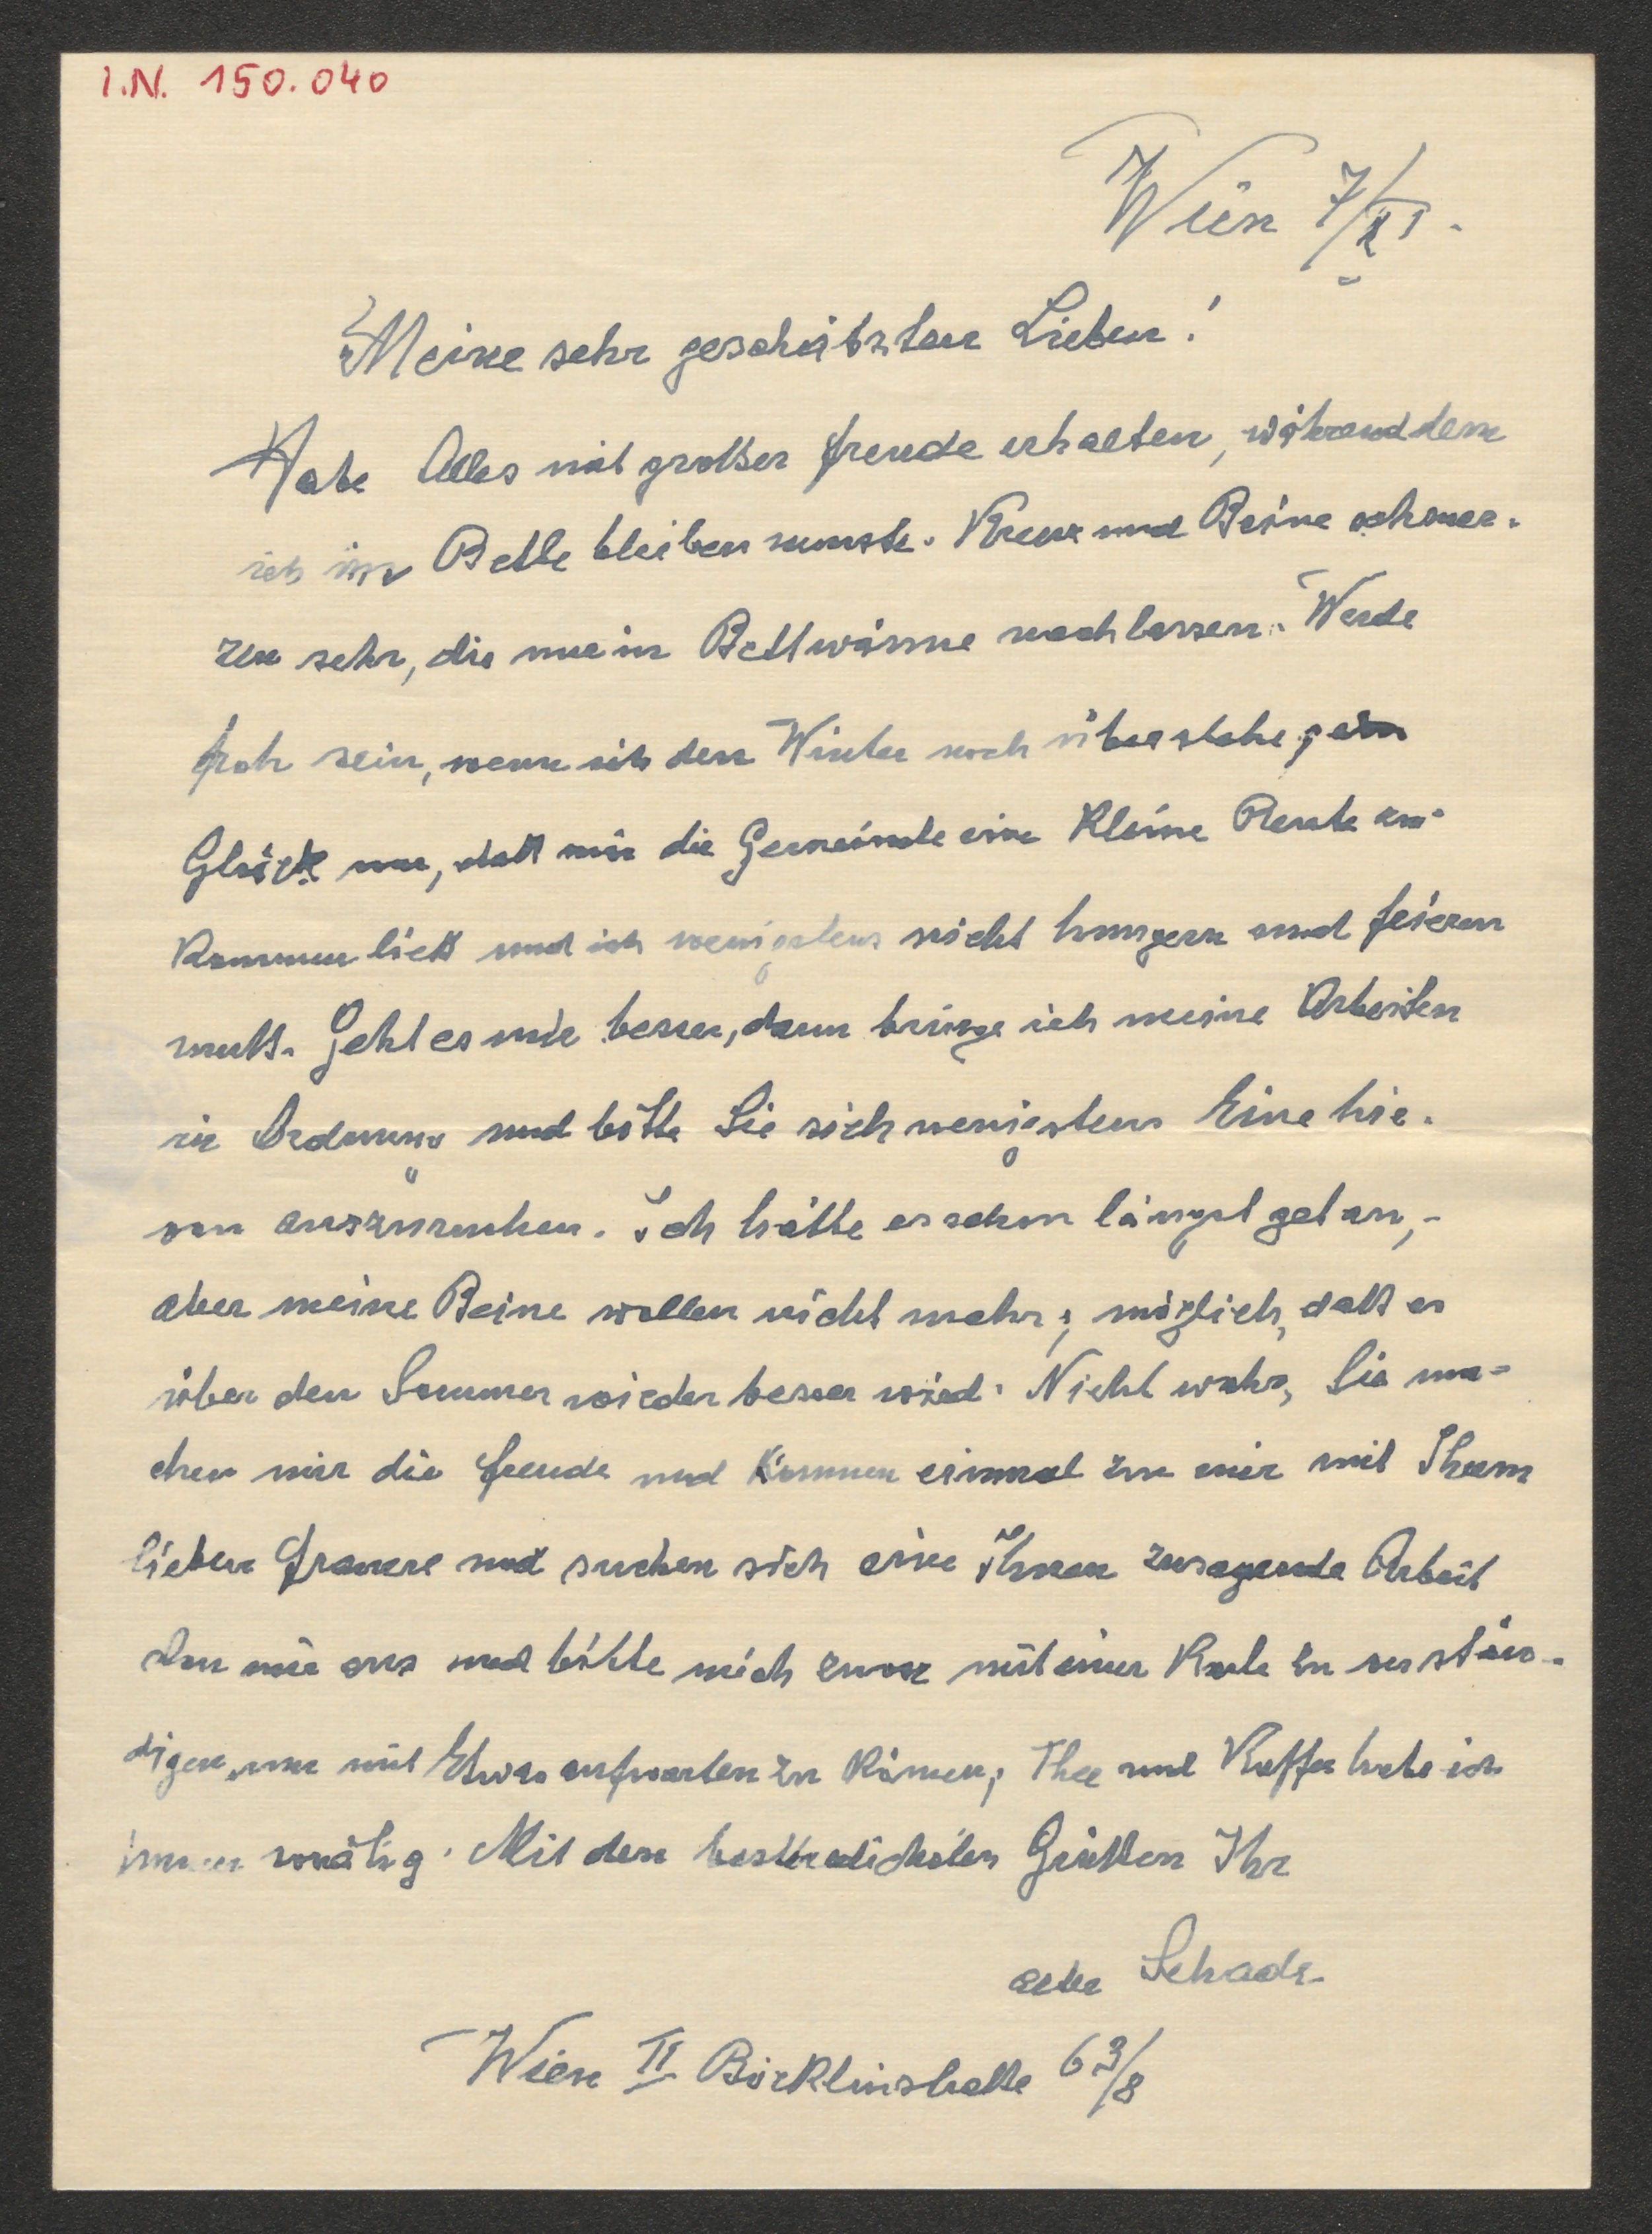 I.N. 150.040
Wien 7/XI.
Meine sehr geschätzten Lieben!
Habe Alles mit großer Freude erhalten, während dem
ich im Bette bleiben musste. Kreuz und Beine schmer-
zen sehr, die nur in Bettwärme nachlassen. Werde
froh sein, wenn ich den Winter noch überstehe; ein
Glück nur, daß mir die Gemeinde eine kleine Rente zu-
kommen ließ und ich wenigstens nicht hungern und frieren
muß. Geht es mir besser, dann bringe ich meine Arbeiten
in Ordnung und bitte Sie sich wenigstens Eine hie-
von auszusuchen. Ich hätte es schon längst getan,-
aber meine Beine wollen nicht mehr; möglich, daß es
über den Sommer wieder besser wird. Nicht wahr, Sie ma-
chen mir die Freude und kommen einmal zu mir mit Ihrem
lieben Frauerl und suchen sich eine Ihnen zusagende Arbeit
von mir aus und bitte mich zuvor mit einer Karte zu verstän-
digen, um mit Etwas aufwarten zu können; Thee und Kaffee habe ich
immer vorrätig. Mit den herzlichsten Grüßen Ihr
alter Schade
Wien II Böcklinstraße 6 3/8